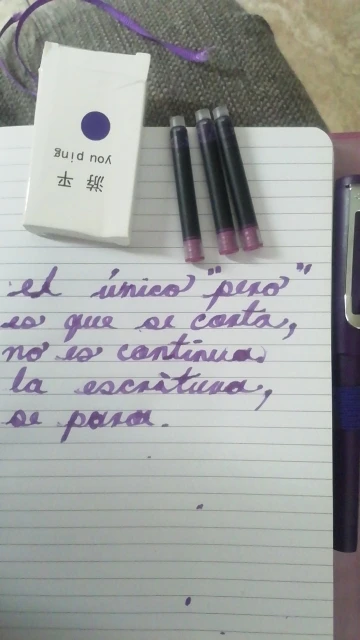 you ping
游 平
el único "pero"
es que se corta,
no es continua.
la escritura,
se para.